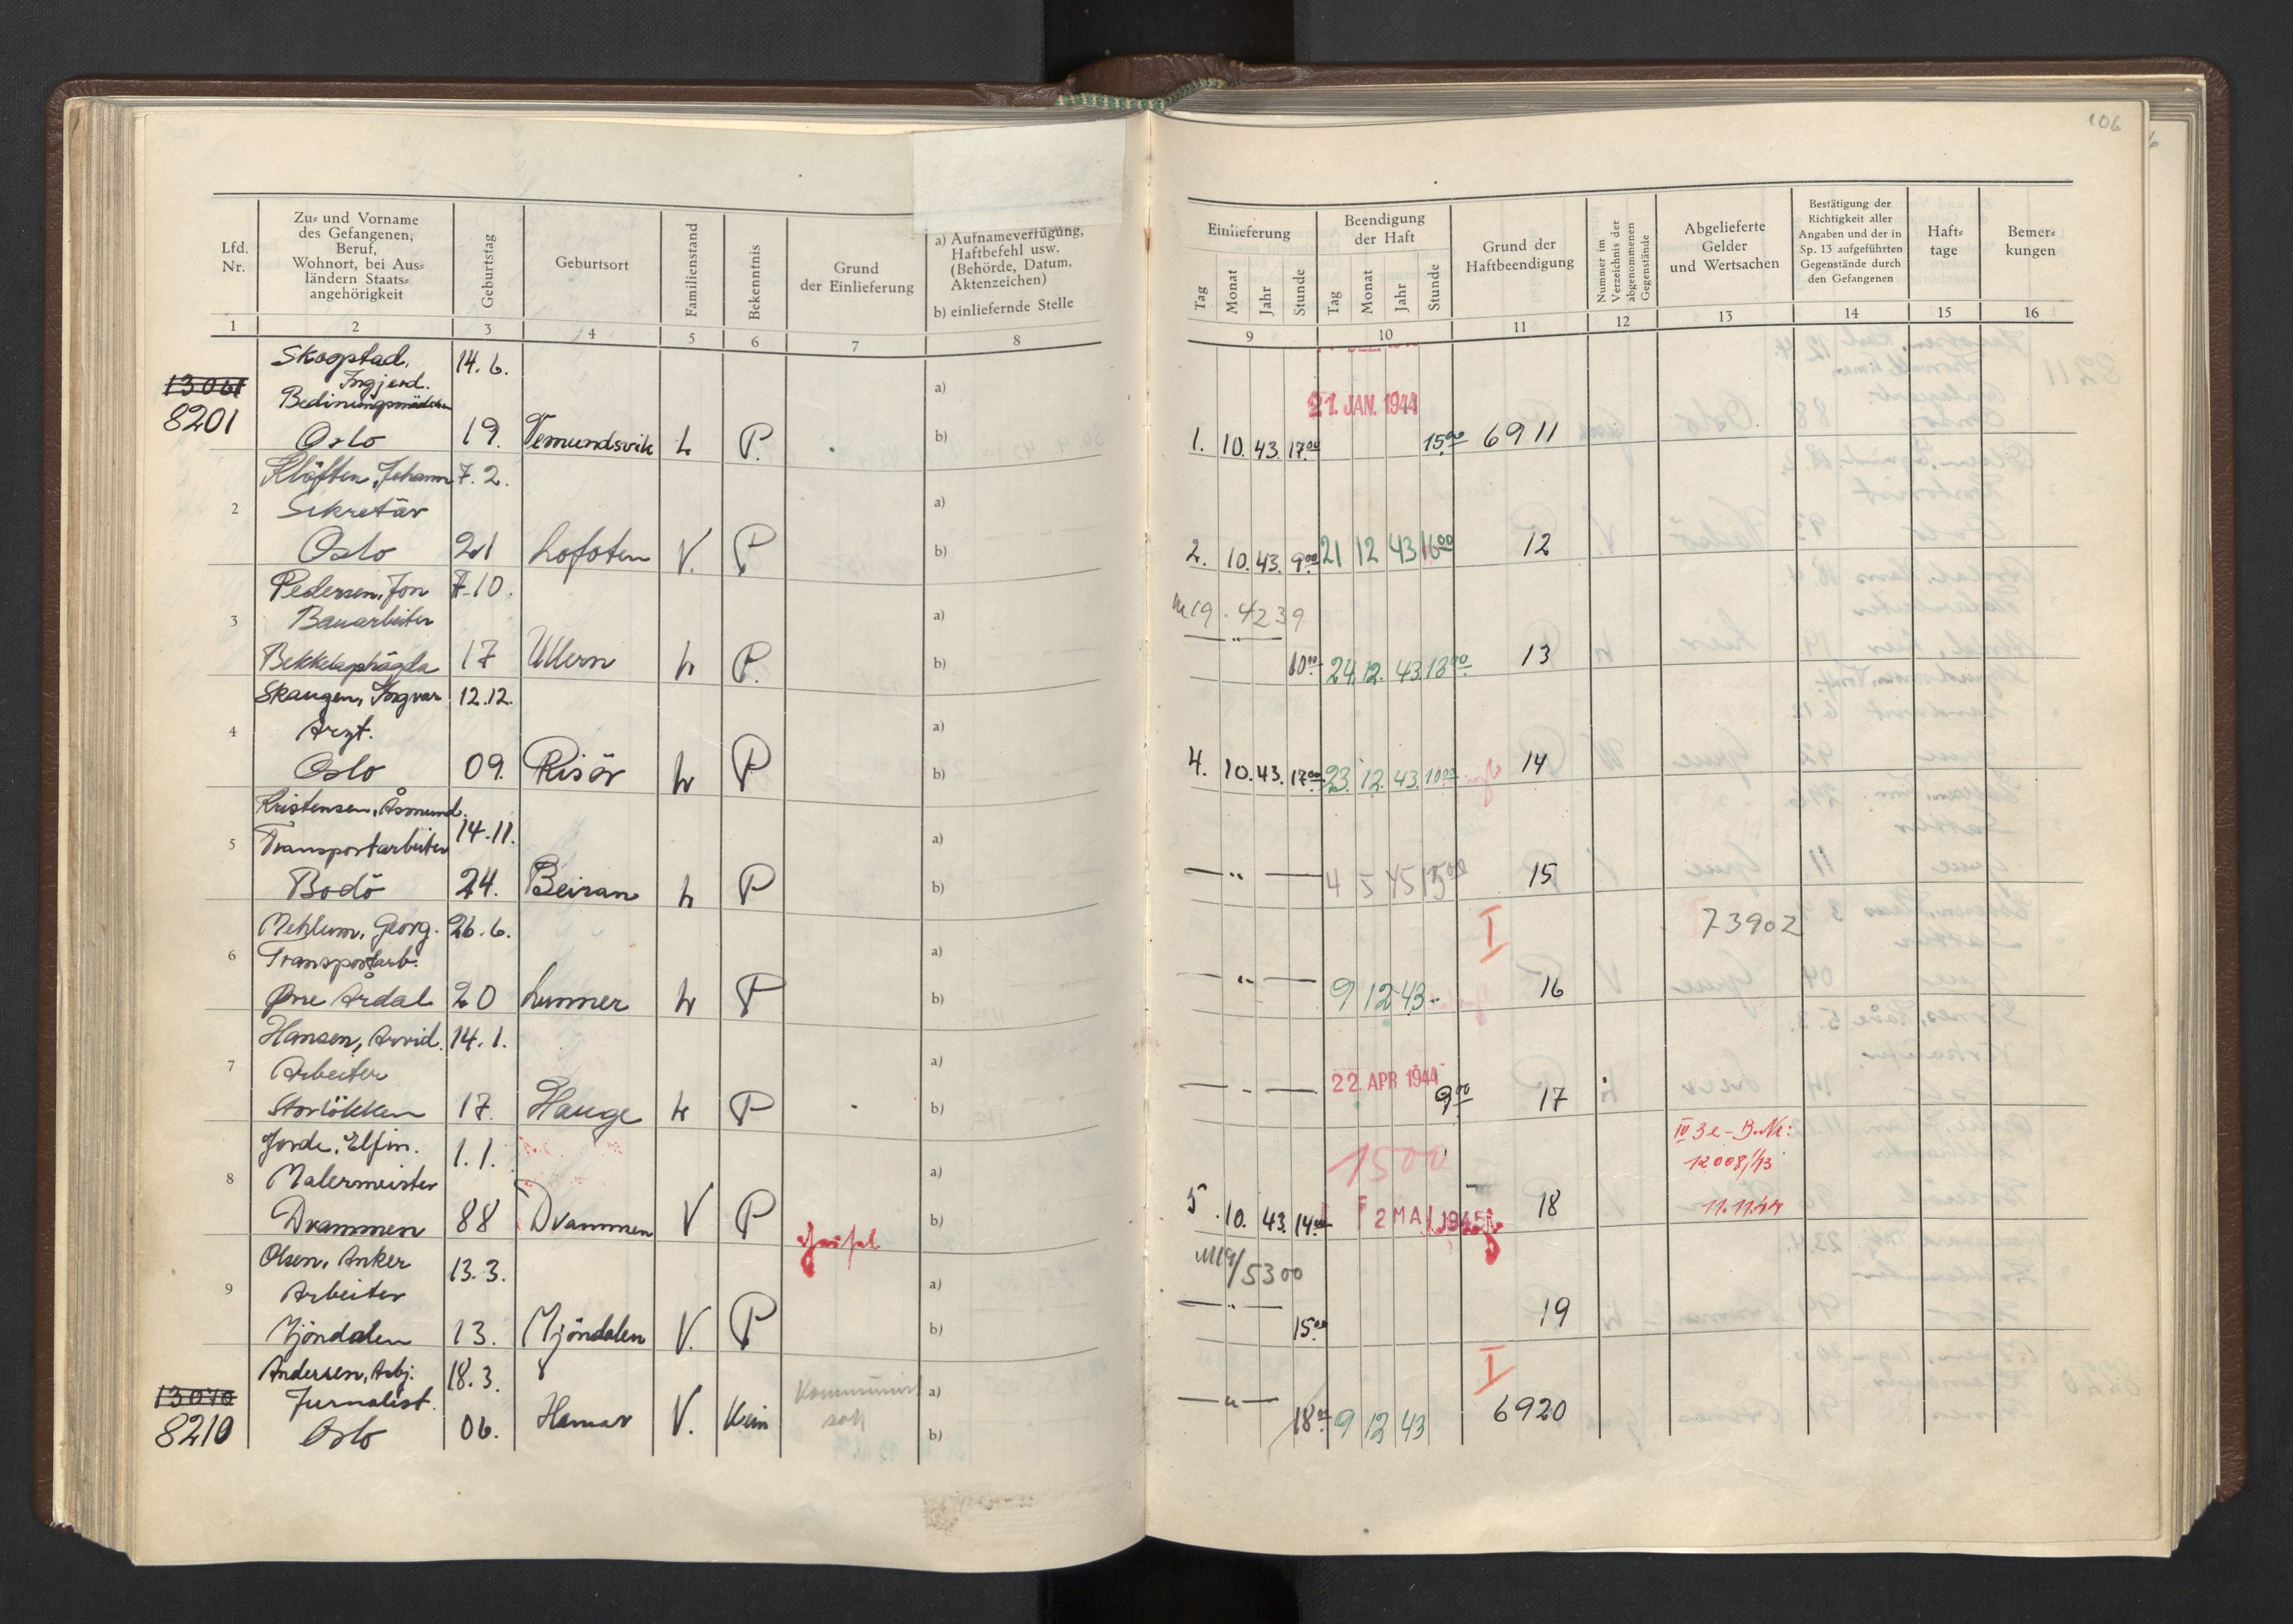 106
Lfd. Nr.
Zu= und Vorname
des Gefangenen,
Beruf,
Wohnort, bei Aus=
ländern Staats=
angehörigkeit
Geburtstag
Geburtsort
Familienstand
Bekenntnis
Grund
der Einlieferung
a) Aufnameverfügung,
Haftbefehl usw.
(Behörde, Datum,
Aktenzeichen)
b) einliefernde Stelle
Einlieferung
Tag Monat Jahr Stunde
Beendigung
der Haft
Tag Monat Jahr Stunde
Grund der
Haftbeendigung
Nummer im
Verzeichnis der
abgenommenen
Gegenstände
Abgelieferte
Gelder
und Wertsachen
Bestätigung der
Richtigkeit aller
Angaben und der in
Sp. 13 aufgeführten
Gegenstände durch
den Gefangenen
Haft=
tage
Bemer=
kungen
1 2 3 4 5 6 7 8 9 10 11 12 13 14 15 16
Skogstad, 14.6.
13061 Ingjerd. a)
8201 Bedinungsmädchen 21. JAN. 1944
Oslo 19. Vemundsvik L P. b) 1. 10. 43. 17⁰⁰ 15⁰⁰ 6911
Kläften, Johann 7.2.
2 Sekretär a)
Oslo 21 Lofoten V. P b) 2. 10. 43. 9⁰⁰ 21 12 43 16⁰⁰ 12
Pedersen, Jon 7.10.
3 Bauarbeiter a) 4239
Bekkelagshøgda 17 Ullern L P. b) — " — 10⁰⁰ 24. 12. 43. 13⁰⁰ 13
Skaugen, Ingvar 12.12.
4 Arzt. a)
Oslo 09. Risör L P b) 4. 10. 43. 17⁰⁰ 23. 12. 43. 10⁰⁰ 14
Kristensen, Åsmund.
5 Transportarbeiter 14.11. a)
Bodö 24. Beiran L P b) — " — 4 5 45 15⁰⁰ 15
Mehlum, Georg. 26.6. I 73902
6 Transportarb. a)
Øvre Årdal 20 Lunner L P b) — " — 9 12 43 16
Hansen, Arvid. 14.1.
7 Arbeiter a) 22. APR 1944
Storlökken 17. Hauge L P b) — " — 9⁰⁰ 17
Jorde, Elfin. 1.1. IV 3e - B.Nr:
8 Malermeister a) 1500 12008/43
Drammen 88 Drammen V P b) 5. 10. 43. 14⁰⁰ 2 MAI 1945 18 11.11.44
Geisel
Olsen, Anker 13.3. 5300
9 Arbeiter a)
Mjöndalen 13. Mjöndalen V. P b) — " — 15⁰⁰ 19
Andersen, Asbj. 18.3. I
13070 Jurnalist. Kommunist a)
8210 Oslo 06. Hamar V. Kein b) — " — 18⁰⁰ 9 12 43 6920